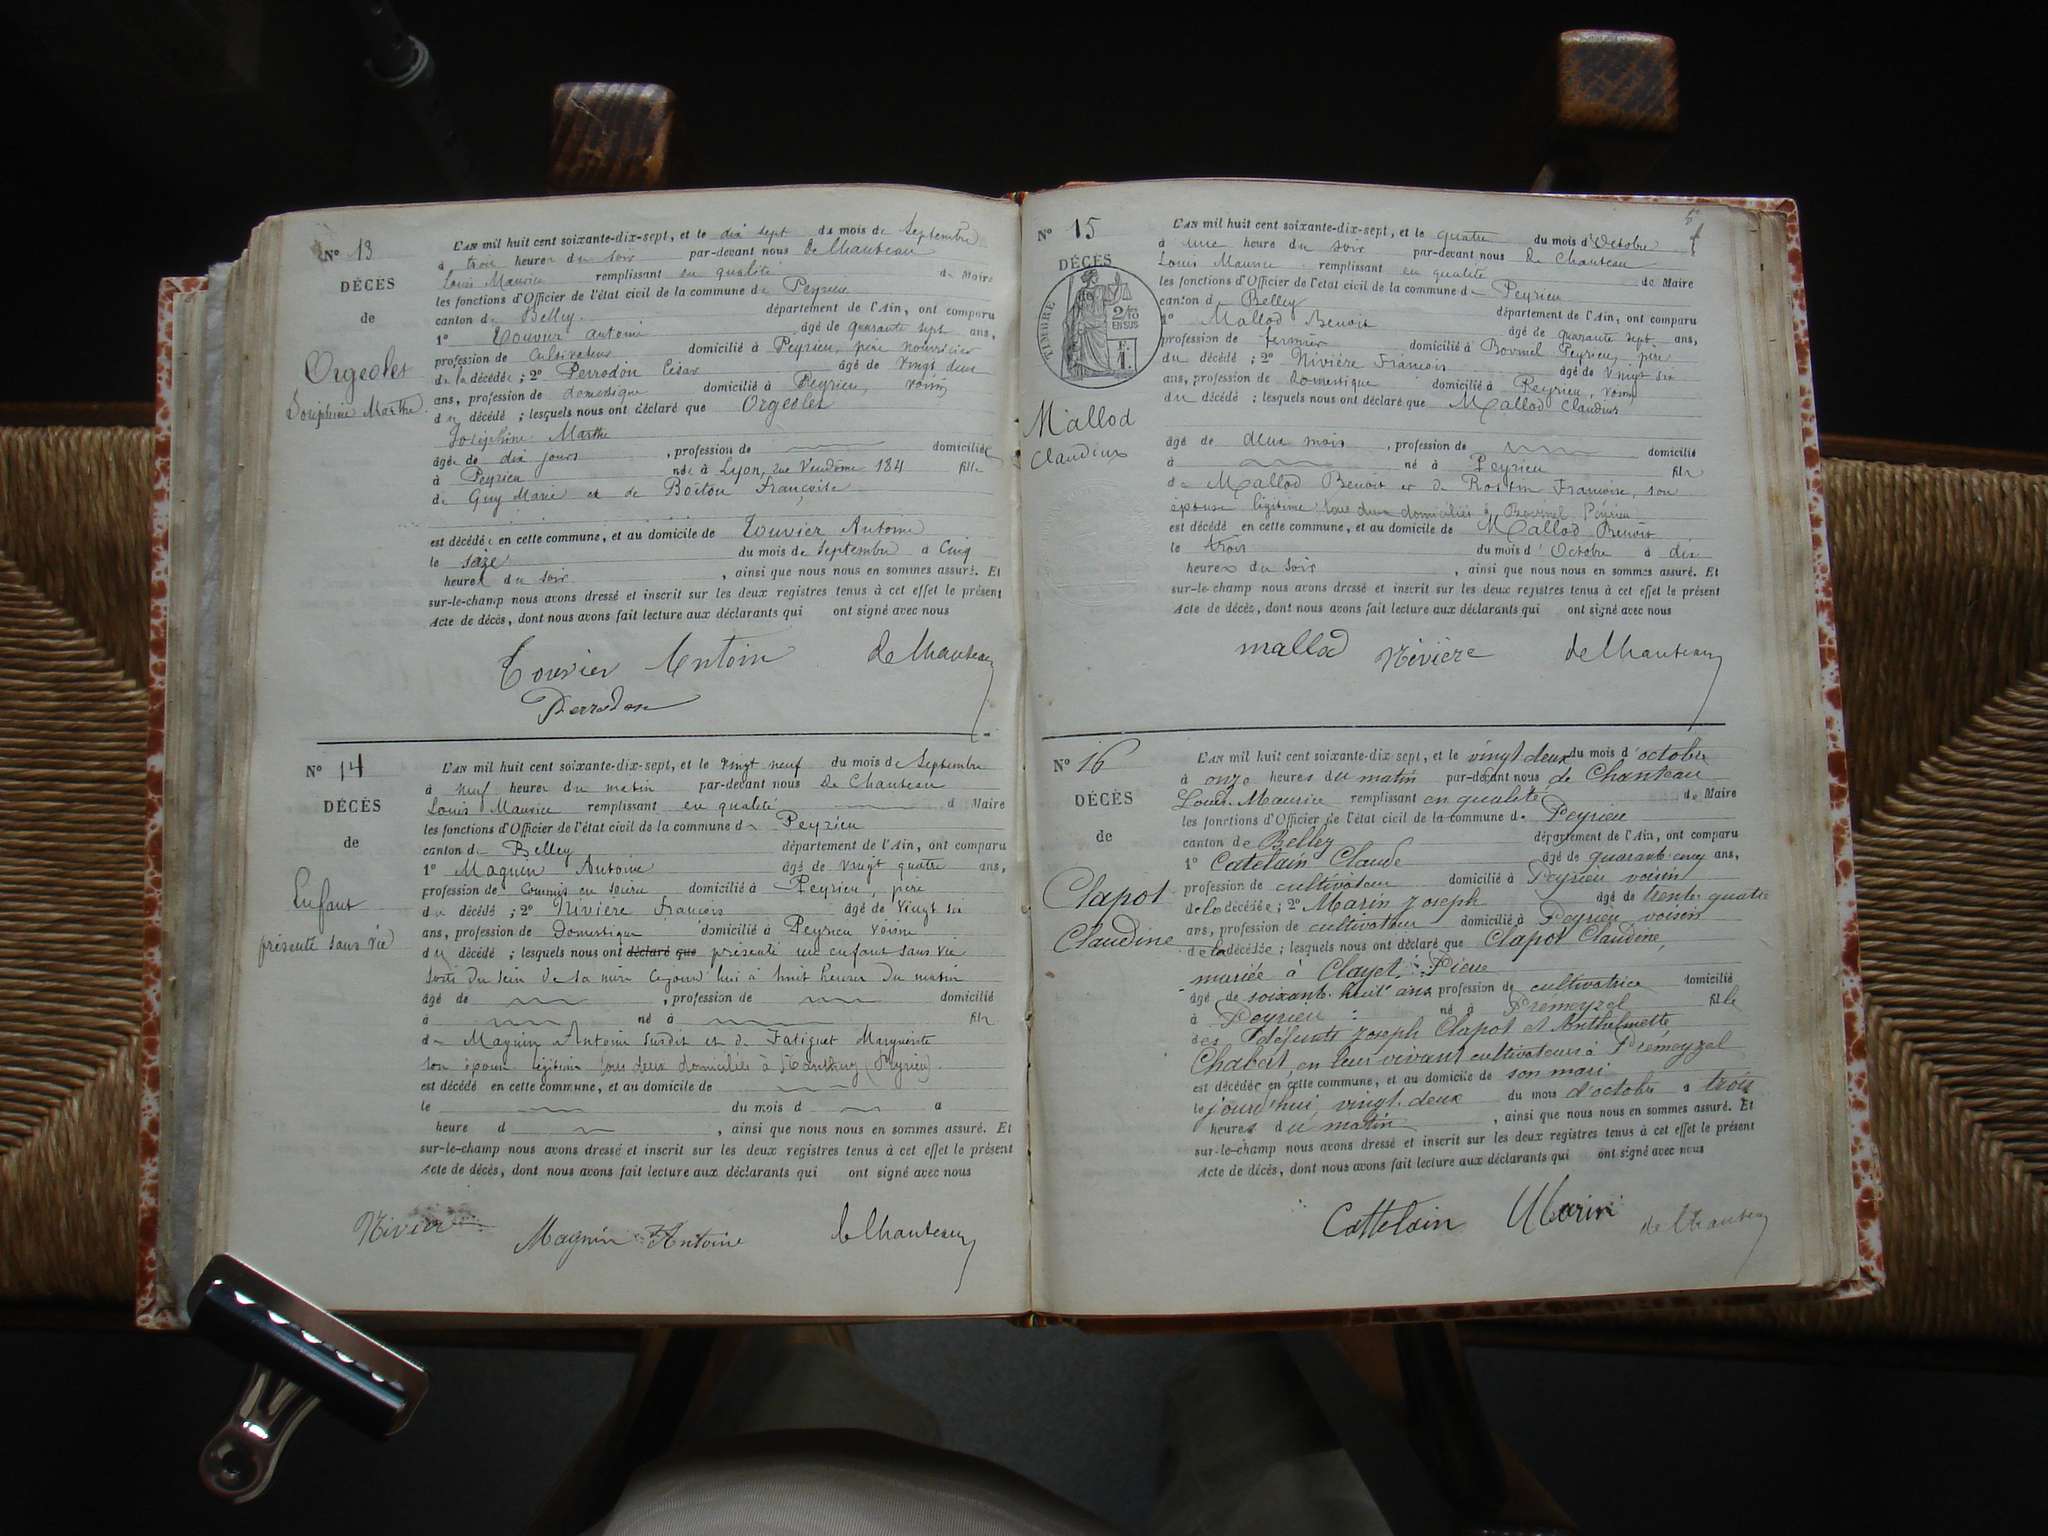 N° 13
DÉCÈS
de
Orgeolet
Joséphine Marthe
L'AN mil huit cent soixante-dix-sept, et le dix sept du mois de Septembre
à trois heures du soir par-devant nous de Chanteau
Louis Maurice remplissant en qualité de Maire
les fonctions d'Officier de l'état civil de la commune de Peyrieu
canton de Belley département de l'Ain, ont comparu
1° Touvier Antoine âgé de quarante sept ans,
profession de cultivateur domicilié à Peyrieu, père nourricier
de la décédée ; 2° Perrodon César âgé de vingt deux
ans, profession de domestique domicilié à Peyrieu, voisin
du décédé ; lesquels nous ont déclaré que Orgeolet
Joséphine Marthe
âgée de dix jours , profession de domiciliée
à Peyrieu née à Lyon, rue Vendôme 184 fille
de Guy Marie et de Boiton Françoise
est décédée en cette commune, et au domicile de Touvier Antoine
le seize du mois de Septembre à Cinq
heures du soir , ainsi que nous nous en sommes assuré. Et
sur-le-champ nous avons dressé et inscrit sur les deux registres tenus à cet effet le présent
Acte de décès, dont nous avons fait lecture aux déclarants qui ont signé avec nous
Touvier Antoin de Chanteau
Perrodon
N° 14
DÉCÈS
de
Enfant
présenté sans vie
L'AN mil huit cent soixante-dix-sept, et le vingt neuf du mois de Septembre
à neuf heures du matin par-devant nous de Chanteau
Louis Maurice remplissant en qualité d Maire
les fonctions d'Officier de l'état civil de la commune de Peyrieu
canton de Belley département de l'Ain, ont comparu
1° Magnin Antoine âgé de vingt quatre ans,
profession de Commis en soierie domicilié à Peyrieu, père
du décédé ; 2° Nivière François âgé de vingt six
ans, profession de Domestique domicilié à Peyrieu voisin
du décédé ; lesquels nous ont déclaré que présenté un enfant sans vie
sorti du sein de sa mère cejourd'hui à huit heures du matin
âgé de , profession de domicilié
à né à fils
de Magnin Antoine susdit et de Fatiguet Marguerite
son épouse légitime tous deux domiciliés à (Peyrieu).
est décédé en cette commune, et au domicile de
le du mois d a
heure d , ainsi que nous nous en sommes assuré. Et
sur-le-champ nous avons dressé et inscrit sur les deux registres tenus à cet effet le présent
Acte de décès, dont nous avons fait lecture aux déclarants qui ont signé avec nous
Nivière Magnin Antoine de Chanteau
N° 15
DÉCÈS
de
TIMBRE
2/10
EN SUS
F.
1.
Mallod
Claudius
L'AN mil huit cent soixante-dix-sept, et le quatre du mois d'Octobre
à une heure du soir par-devant nous De Chanteau
Louis Maurice remplissant en qualité de Maire
les fonctions d'Officier de l'état civil de la commune de Peyrieu
canton de Belley département de l'Ain, ont comparu
1° Mallod Benoit âgé de quarante sept ans,
profession de fermier domicilié à Bovinel Peyrieu, père
du décédé ; 2° Nivière François âgé de vingt six
ans, profession de Domestique domicilié à Peyrieu, voisin
du décédé ; lesquels nous ont déclaré que Mallod Claudius
âgé de deux mois , profession de domicilié
à né à Peyrieu fils
de Mallod Benoit et de Françoise, son
épouse légitime tous deux domiciliés à Bovinel Peyrieu
est décédé en cette commune, et au domicile de Mallod Benoit
le trois du mois d'Octobre à dix
heures du soir , ainsi que nous nous en sommes assuré. Et
sur-le-champ nous avons dressé et inscrit sur les deux registres tenus à cet effet le présent
Acte de décès, dont nous avons fait lecture aux déclarants qui ont signé avec nous
mallod Nivière de Chanteau
N° 16
DÉCÈS
de
Clapot
Claudine
L'AN mil huit cent soixante-dix-sept, et le vingt deux du mois d'octobre
à onze heures du matin par-devant nous de Chanteau
Louis Maurice remplissant en qualité de Maire
les fonctions d'Officier de l'état civil de la commune de Peyrieu
canton de Belley département de l'Ain, ont comparu
1° Catelain Claude âgé de quarante cinq ans,
profession de cultivateur domicilié à Peyrieu voisin
de la décédée ; 2° Marin Joseph âgé de trente quatre
ans, profession de cultivateur domicilié à Peyrieu voisin
de la décédée ; lesquels nous ont déclaré que Clapot Claudine,
mariée à Clayet, Pierre
âgé de soixante huit ans profession de cultivatrice domicilié
à Peyrieu né à Prémeyzel fille
des défunts Joseph Clapot et Anthelmette
Chabert en leur vivant cultivateurs à Prémeyzel
est décédée en cette commune, et au domicile de son mari
le jourd'hui, vingt deux du mois d'octobre à trois
heures du matin , ainsi que nous nous en sommes assuré. Et
sur-le-champ nous avons dressé et inscrit sur les deux registres tenus à cet effet le présent
Acte de décès, dont nous avons fait lecture aux déclarants qui ont signé avec nous
Cattelain Marin de Chanteau